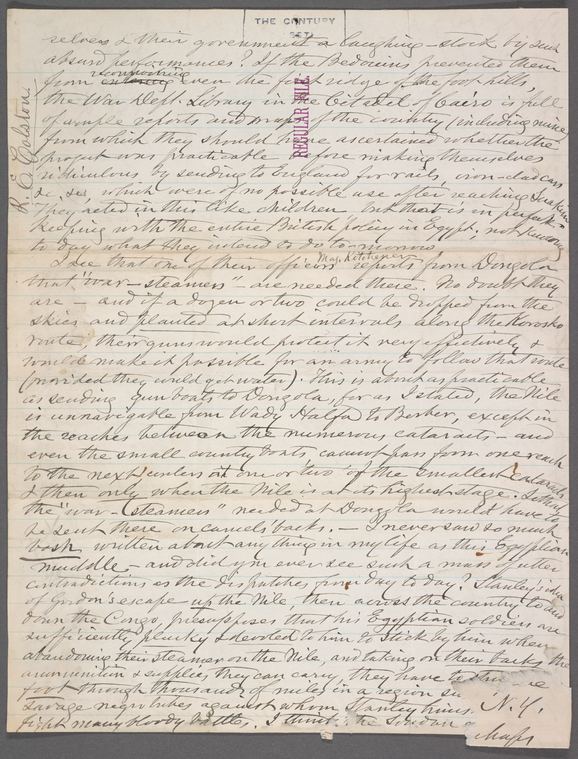 THE CENTURY
SET
REGULAR FILE.
R. E. Colston
selves & their government a laughing-stock by such
absurd performances? If the Bedouins prevented them
from reconnoitring even the first ridge of the foot-hills,
the War Dept. Library in the Citadel of Cairo is full
of ample reports and maps of the country (including mine)
from which they should have ascertained whether the
project was practicable before making themselves
ridiculous by sending to England for rails, iron-clad cars
&c &c which were of no possible use after reaching Suakim
They acted in this like children but that is in perfect
keeping with the entire British policy in Egypt, not knowing
to day what they intend to do to-morrow
I see that one of their officers Maj. Kitchener reports from Dongola
that "war-steamers" are needed there. No doubt they
are – and if a dozen or two could be dropped from the
skies and planted at short intervals along the Korosko
route, their guns would protect it very effectively &
would make it possible for an army to follow that route
(provided they could get water). This is about as practicable
as sending gun boats to Dongola, for as I stated, the Nile
is unnavigable from Wady Halfa to Berber, except in
the reaches between the numerous cataracts – and
even the small country boats cannot pass from one reach
to the next unless at one or two of the smallest cataracts
& then only when the Nile is at its highest stage. So that
the "war-steamers" needed at Dongola would have to
be sent there on camels' backs. – I never saw so much
bosh written about anything in my life as this Egyptian
muddle – and did you ever see such a mass of utter
contradictions as the dispatches from day to day? Stanley's idea
of Gordon's escape up the Nile, then across the country to and
down the Congo, presupposes that his Egyptian soldiers are
sufficiently plucky & devoted to him to stick by him when
abandoning their steamer on the Nile, and taking on their backs the
ammunition & supplies they can carry, they have to
foot through thousands of miles in a region
savage negro tribes against whom Stanley
fight many bloody battles. I think the Soudan
N.Y.